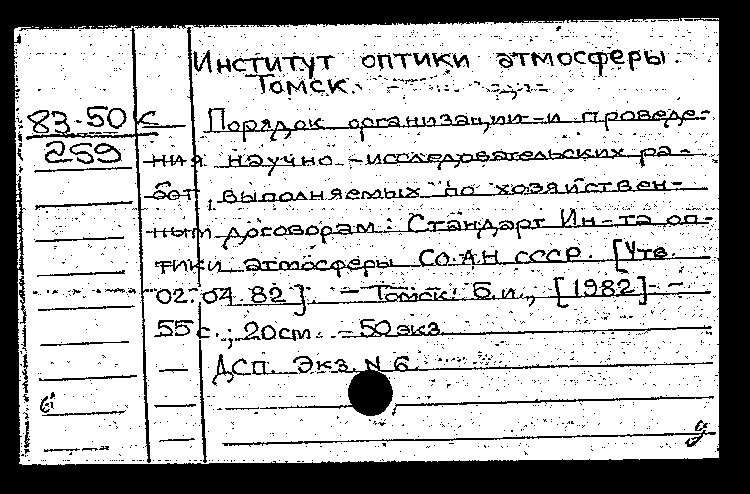 Институт оптики атмосферы.
Томск.
83-50 с Порядок организации и проведе-
259 ния научно-исследовательских ра-
бот, выполняемых по хозяйствен-
ным договорам: Стандарт Ин-та оп-
тики атмосферы СО АН СССР. [Утв.
02.04.82]. - Томск: Б.и., [1982] -
55 с.; 20 см. - 50 экз.
ДСП. Экз. N 6.